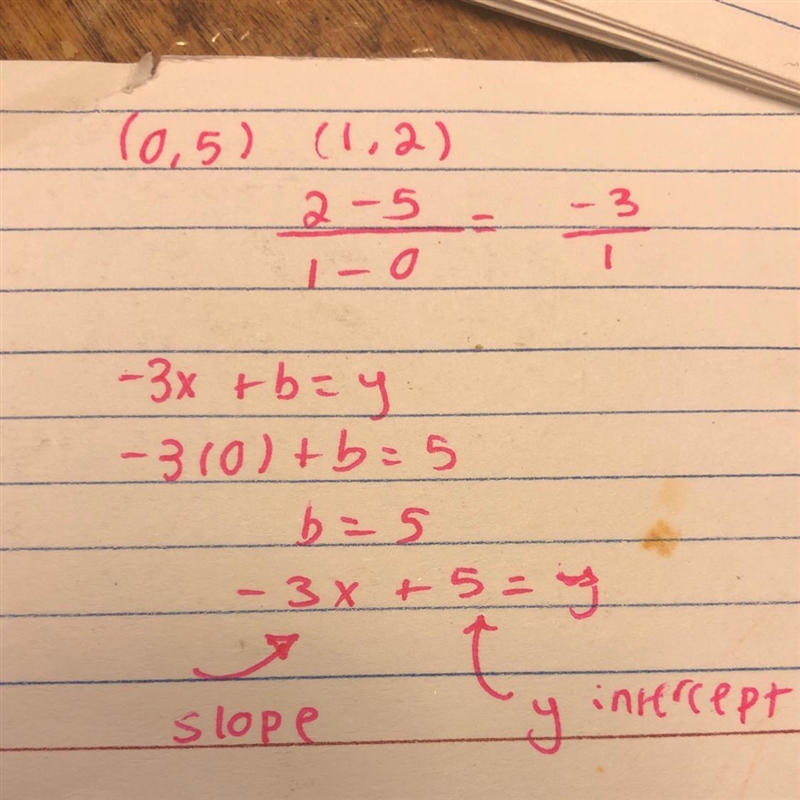 (0,5) (1,2)
2 - 5 / 1 - 0 = -3 / 1
-3x + b = y
-3(0) + b = 5
b = 5
-3x + 5 = y
slope y intercept